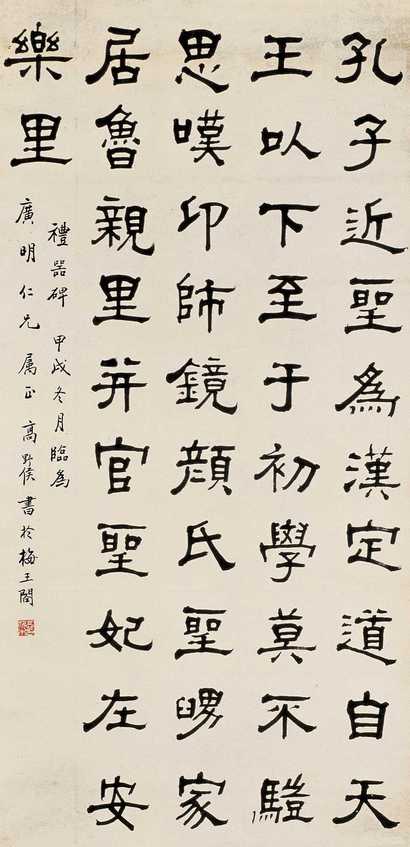 孔子近聖為漢定道自天
王以下至于初學莫不驥
思嘆卬師鏡顏氏聖舅家
居魯親里并官聖妃在安
樂里
禮器碑 甲戌冬月臨為
廣明仁兄属正 高野侯書於梅王閣